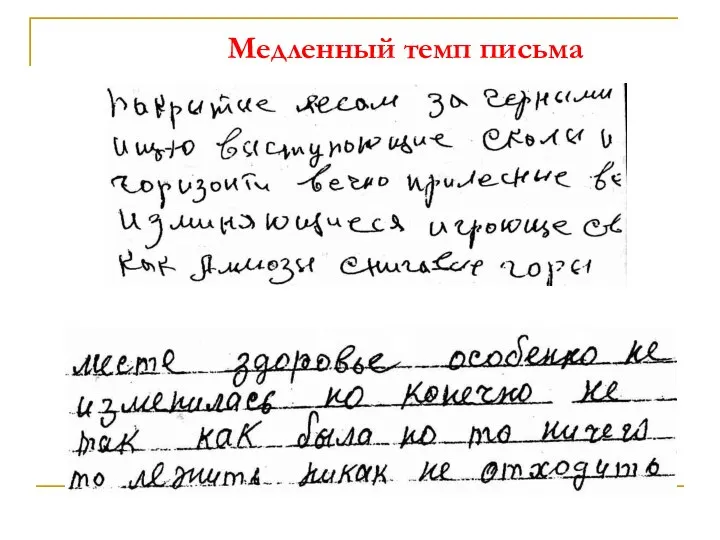 Медленный темп письма
покрытие лесом за черными
ищю выступоющие сколы и
горизонти вечно прилесные ве
измияющиеся игроющe св
кык алмозы снигавые горы
месте здоровье особенко не
изменилась но конечно не
так как была но то ничего
то лежить никак не отходить